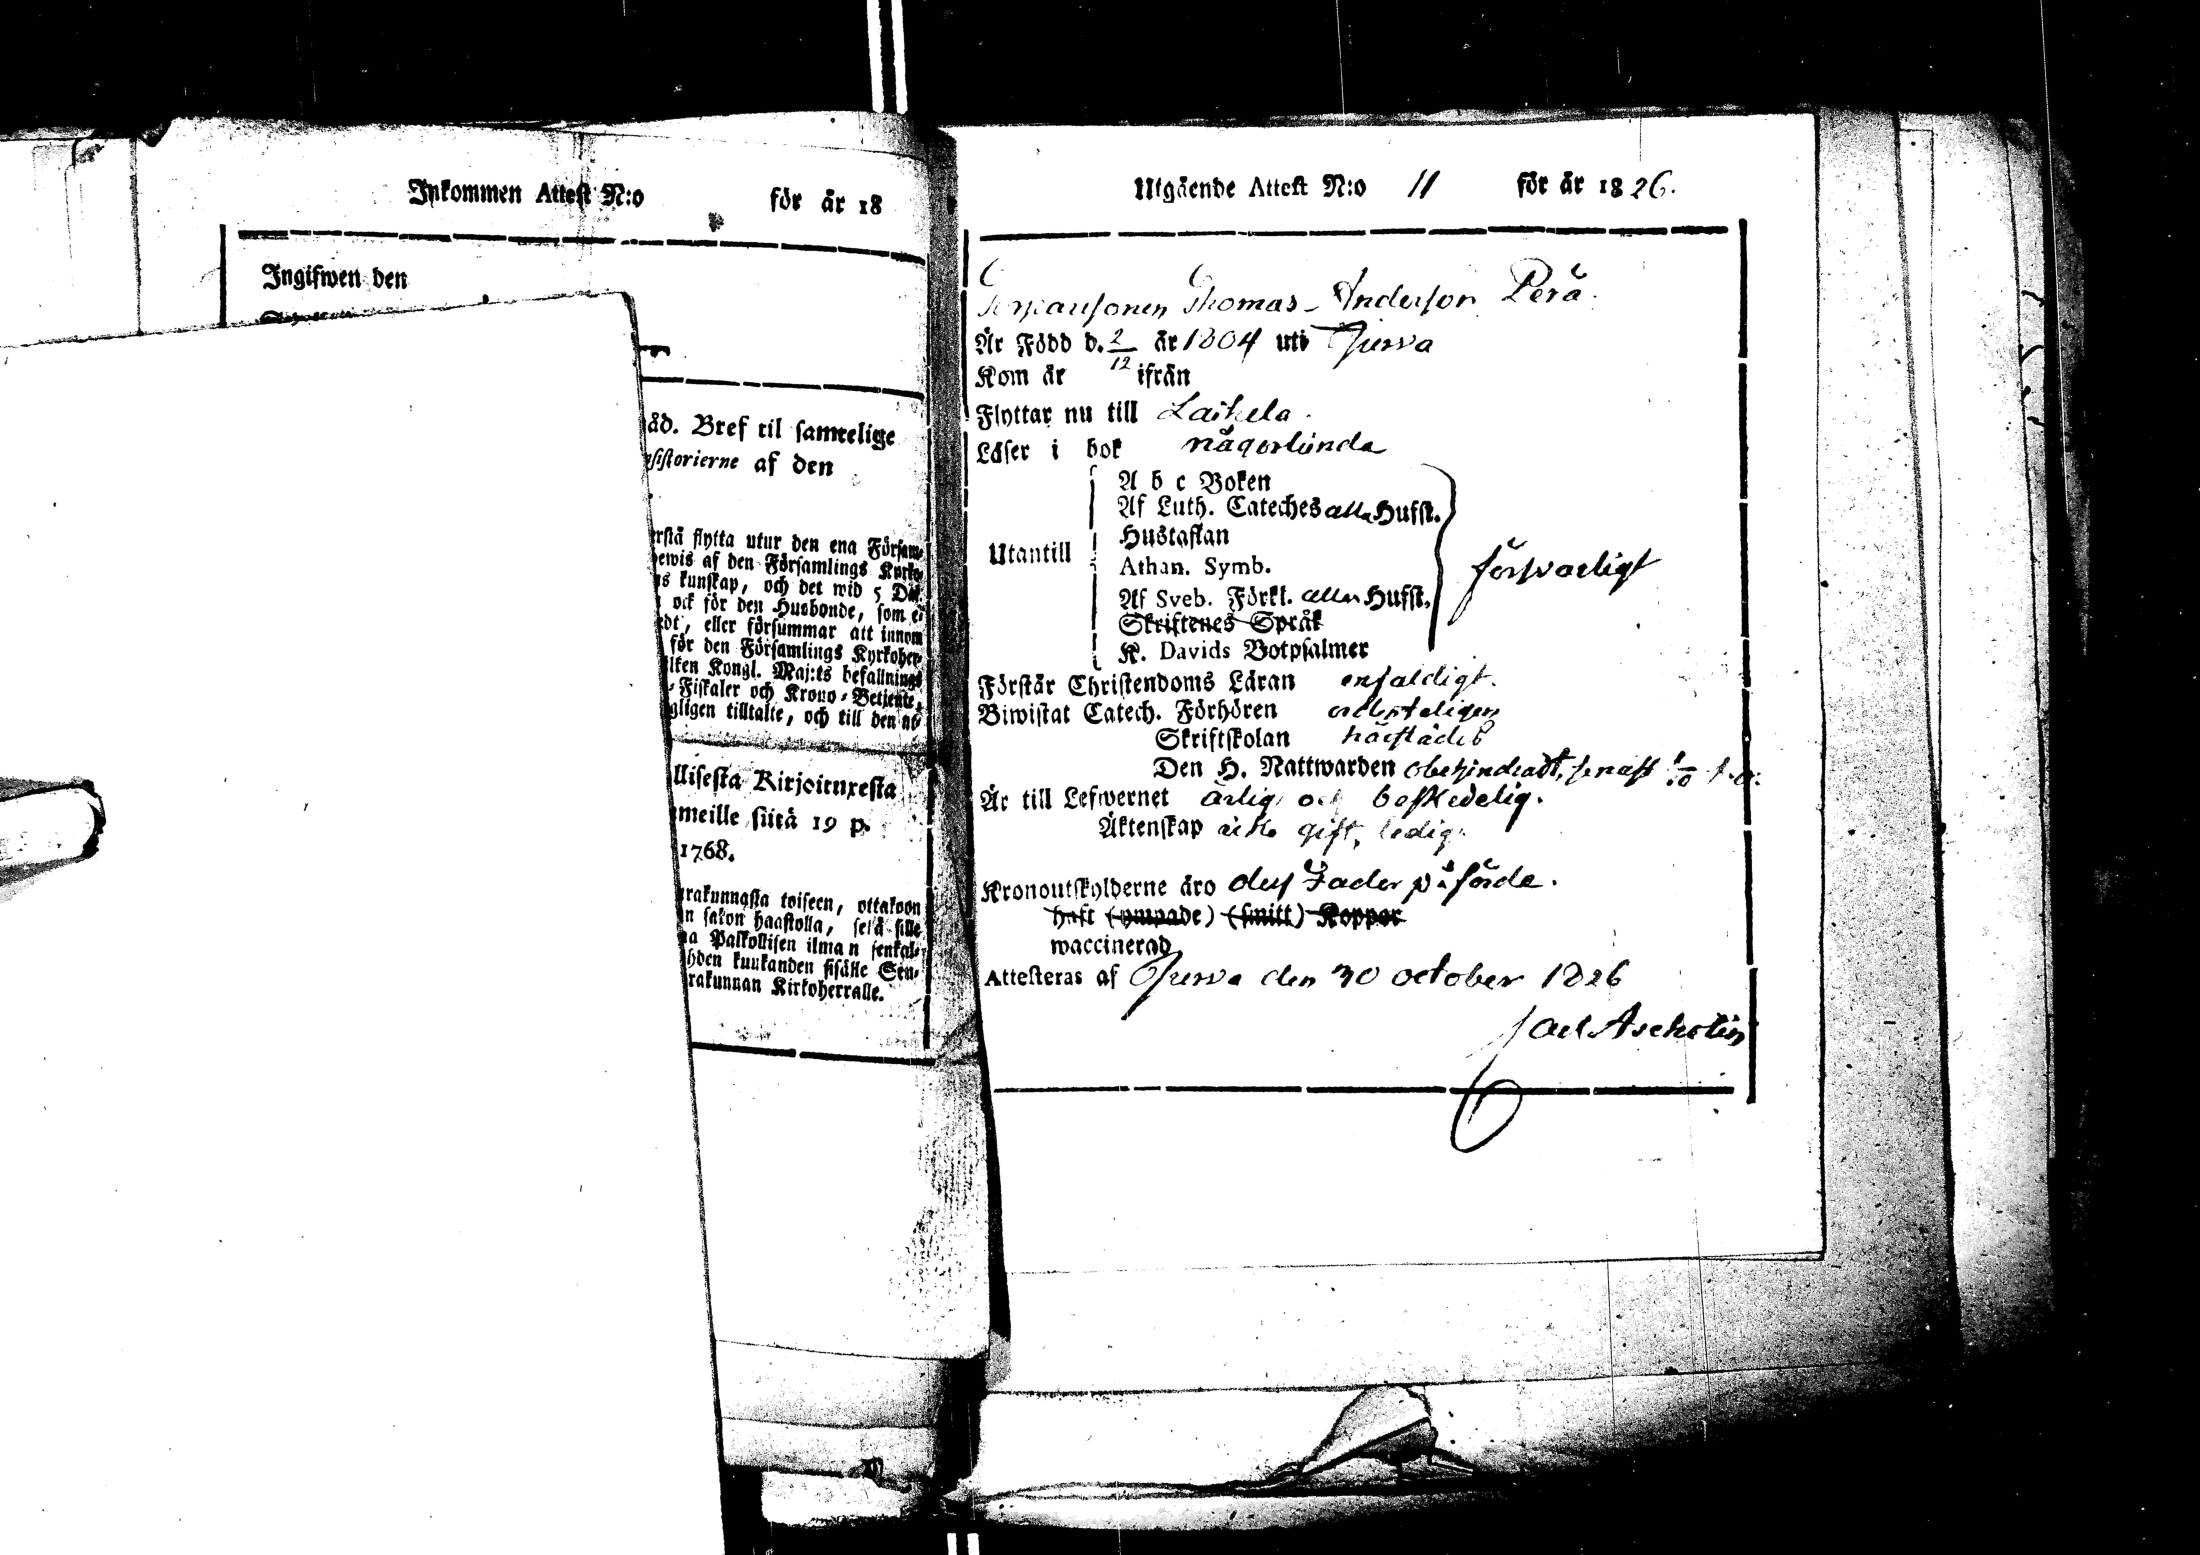 Inkommen Attest N:o för år 18
Ingifwen den
åd. Bref til samtelige
sistorierne af den
rstå flytta utur den ena Försam-
bewis af den Församlings Kyrko-
s kunskap, och det wid 5 Dal.
ock för den Husbonde, som ei
edt, eller försummar att innom
för den Församlings Kyrkoher-
ilken Kongl. Maj:ts befallnings
- Fiskaler och Krono-Betiente,
gligen tilltalte, och till den ut-
llisesta Kirjoituxesta
meille siitä 19 p.
1768.
rakunnasta toiseen, ottakoon
n sakon haastolla, sekä sille
na Palkollisen ilman senkal-
hden kuukanden sisälle Seu-
rakunnan Kirkoherralle.
Utgående Attest N:o 11 för år 1826.
Thomas Andersson Perä.
Är Född d. 2/12 år 1804 uti Jurva
Kom år ifrån
Flyttar nu till Laihela.
Läser i bok någorlunda
A b c Boken
Af Luth. Cateches alla Hufst.
Hustaflan
Utantill
Athan. Symb.
försvarligt
Af Sveb. Förkl. alla Hufst.
Skriftenes Språk
K. Davids Botpsalmer
Förstår Christendoms Läran enfaldigt.
Biwistat Catech. Förhören ordenteligen
Skriftskolan härstädes
Den H. Nattwarden obehindradt, senast
Är till Lefwernet ärlig och beskedelig.
Äktenskap icke gift, ledig.
Kronoutskylderne äro dess Fader påförde.
haft (ympade) (smitt) Koppor
waccinerad
Attesteras af Jurva den 30 october 1826